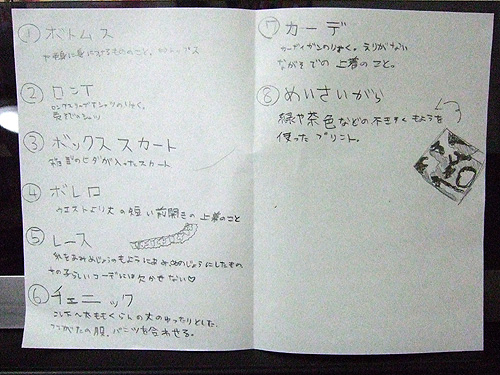 ① ボトムス
下半身に身につけるもののこと。
② ロンT
ロングスリーブTシャツのりゃく。
長そでTシャツ
③ ボックススカート
箱型のヒダが入ったスカート
④ ボレロ
ウエストより丈の短い前開きの上着のこと
⑤ レース
糸をあみめじょうのもように
女の子らしいコーデには欠かせない♡
⑥ チュニック
こし下〜太ももくらいの丈のゆったりとした、
つつがたの服。パンツを合わせる。
⑦ カーデ
カーディガンのりゃく。えりがない
ながそでの上着のこと。
⑧ めいさいがら
緑や茶色などの不きそくもようを
使ったプリント。